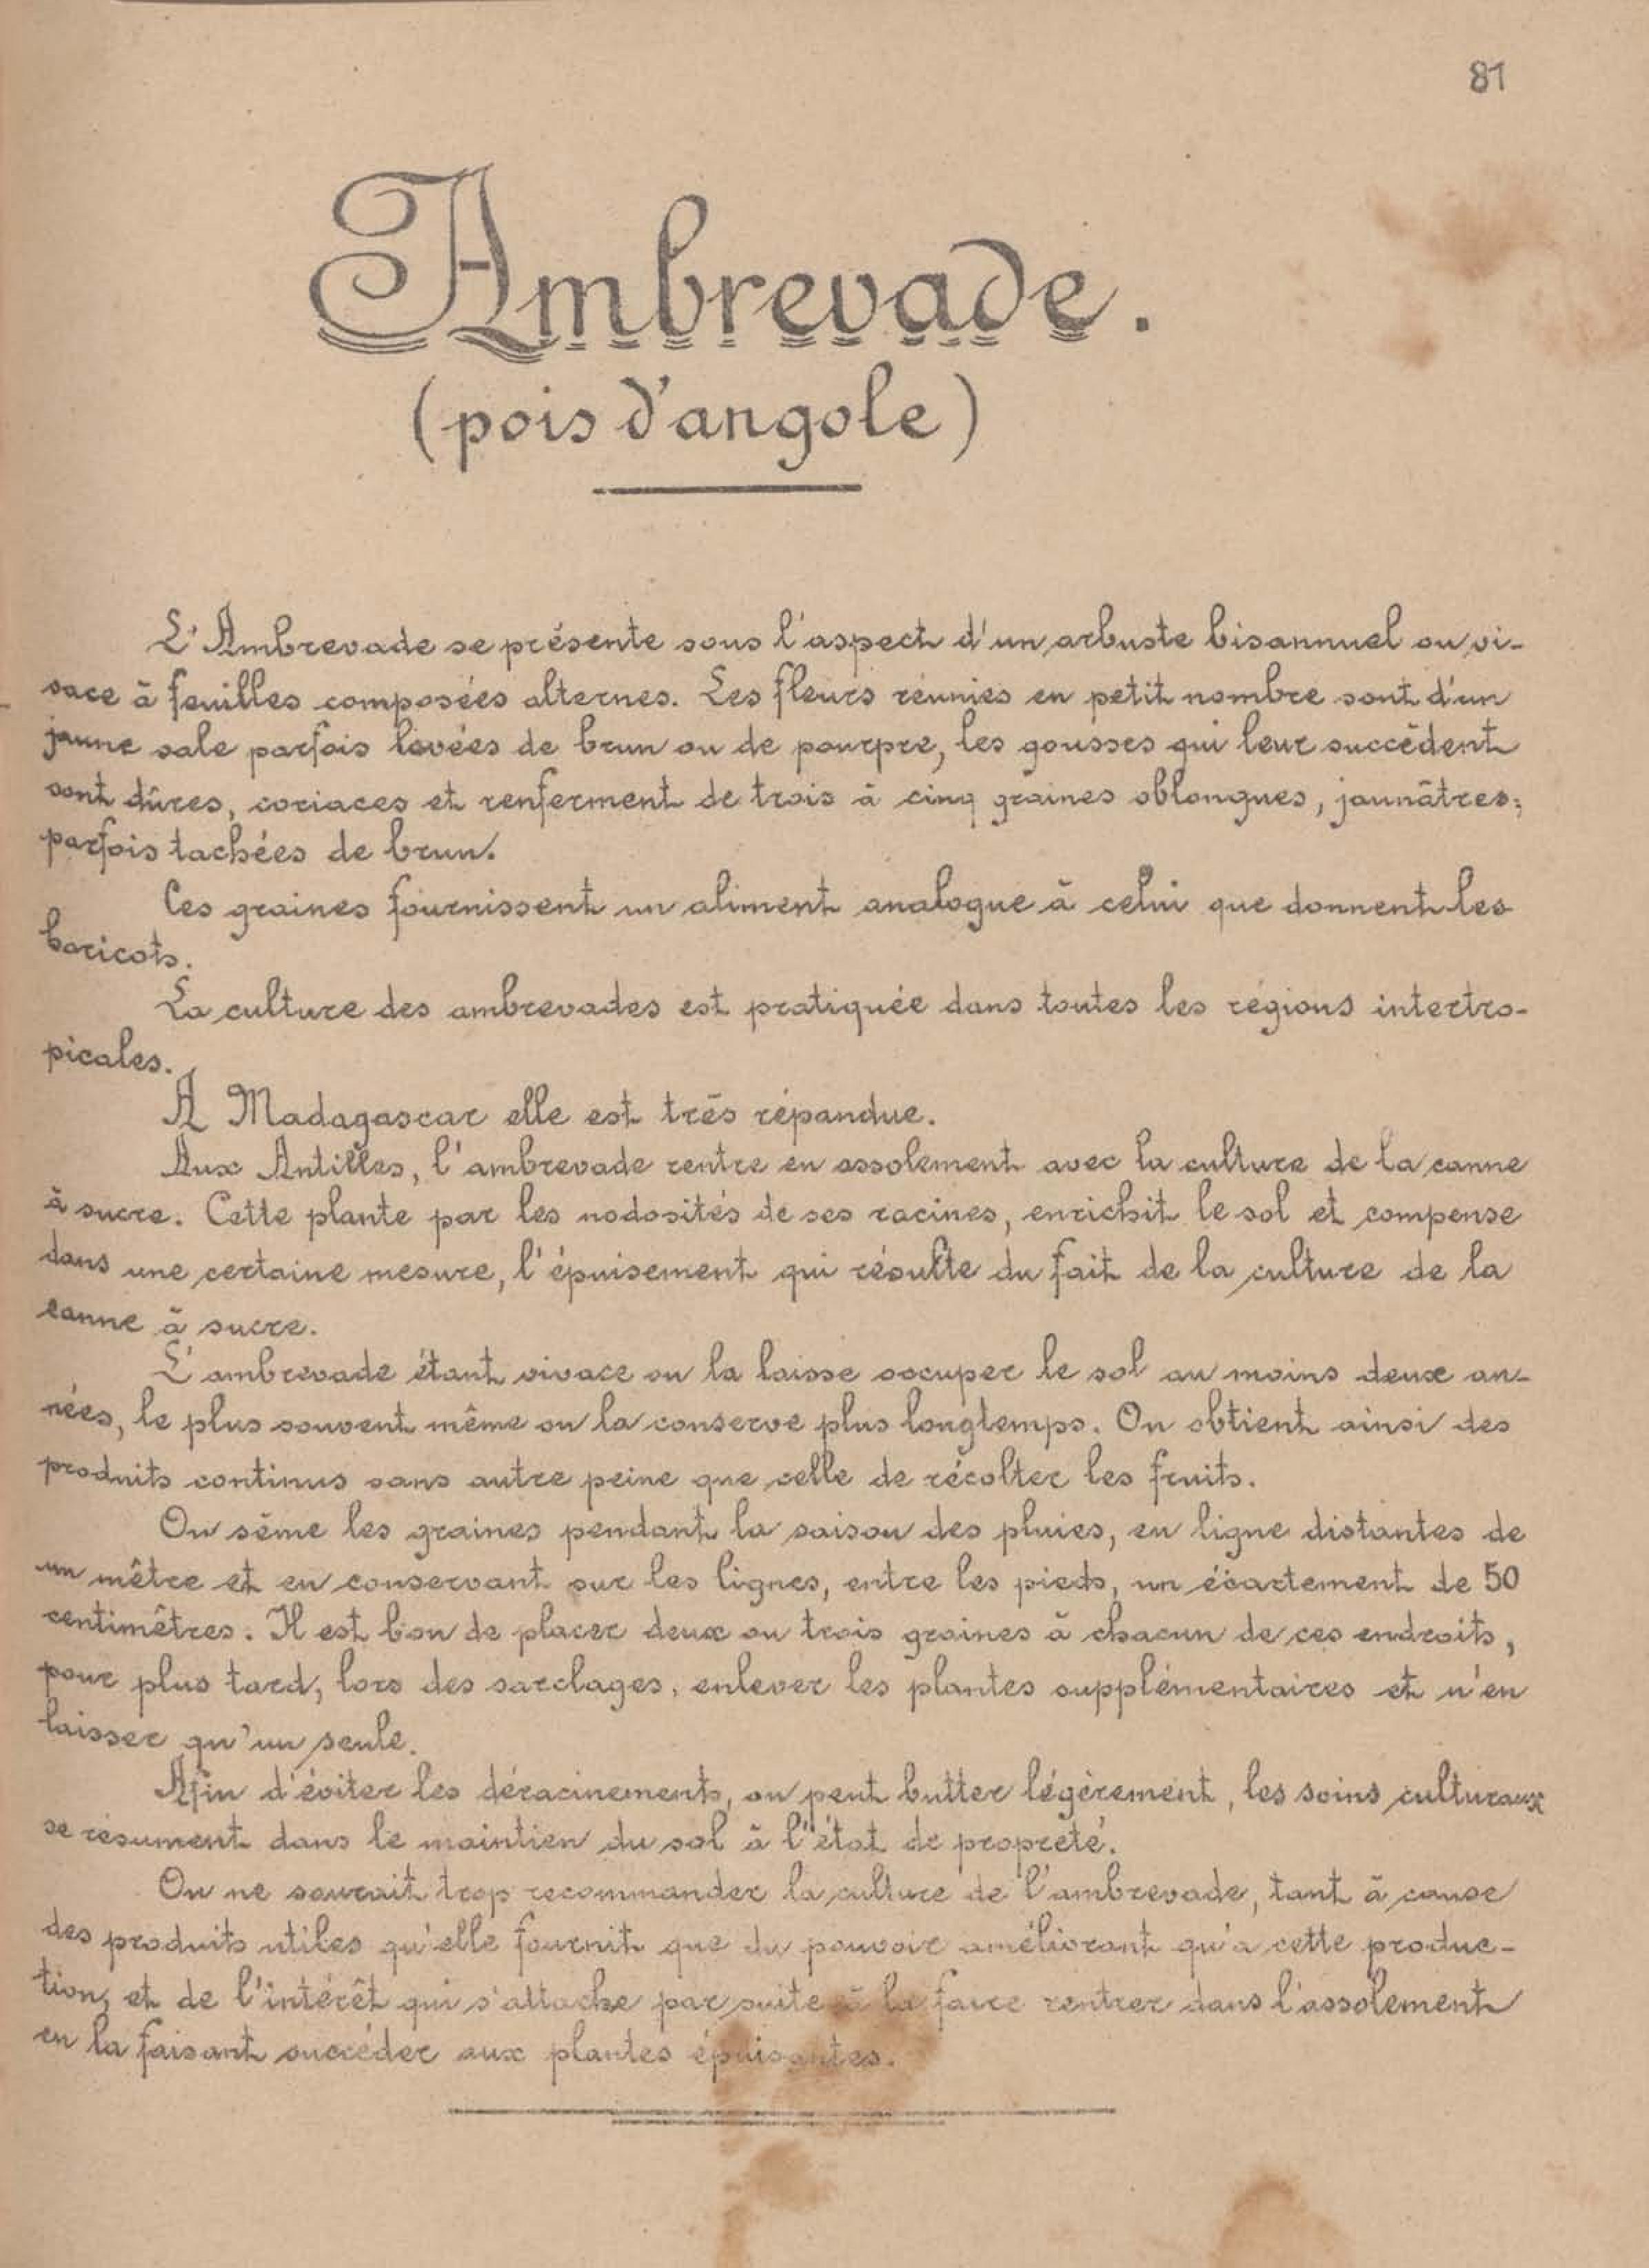 81
Ambrevade.
(pois d'angole)
L'Ambrevade se présente sous l'aspect d'un arbuste bisannuel ou vi-
vace à feuilles composées alternes. Les fleurs réunies en petit nombre sont d'un
jaune sale parfois lavées de brun ou de pourpre, les gousses qui leur succèdent
sont dûres, coriaces et renferment de trois à cinq graines oblongues, jaunâtres,
parfois tachées de brun.
Ces graines fournissent un aliment analogue à celui que donnent les
haricots.
La culture des ambrevades est pratiquée dans toutes les régions intertro-
picales.
A Madagascar elle est très répandue.
Aux Antilles, l'ambrevade rentre en assolement avec la culture de la canne
à sucre. Cette plante par les nodosités de ses racines, enrichit le sol et compense
dans une certaine mesure, l'épuisement qui résulte du fait de la culture de la
canne à sucre.
L'ambrevade étant vivace on la laisse occuper le sol au moins deux an-
nées, le plus souvent même on la conserve plus longtemps. On obtient ainsi des
produits continus sans autre peine que celle de récolter les fruits.
On sème les graines pendant la saison des pluies, en ligne distantes de
un mêtre et en conservant sur les lignes, entre les pieds, un écartement de 50
centimêtres. Il est bon de placer deux ou trois graines à chacun de ces endroits,
pour plus tard, lors des sarclages, enlever les plantes supplémentaires et n'en
laisser qu'un seule.
Afin d'éviter les déracinements, on peut butter légèrement, les soins culturaux
se résument dans le maintien du sol à l'état de propreté.
On ne saurait trop recommander la culture de l'ambrevade, tant à cause
des produits utiles qu'elle fournit que du pouvoir améliorant qu'a cette produc-
tion, et de l'intérêt qui s'attache par suite à la faire rentrer dans l'assolement
en la faisant succéder aux plantes épuisantes.